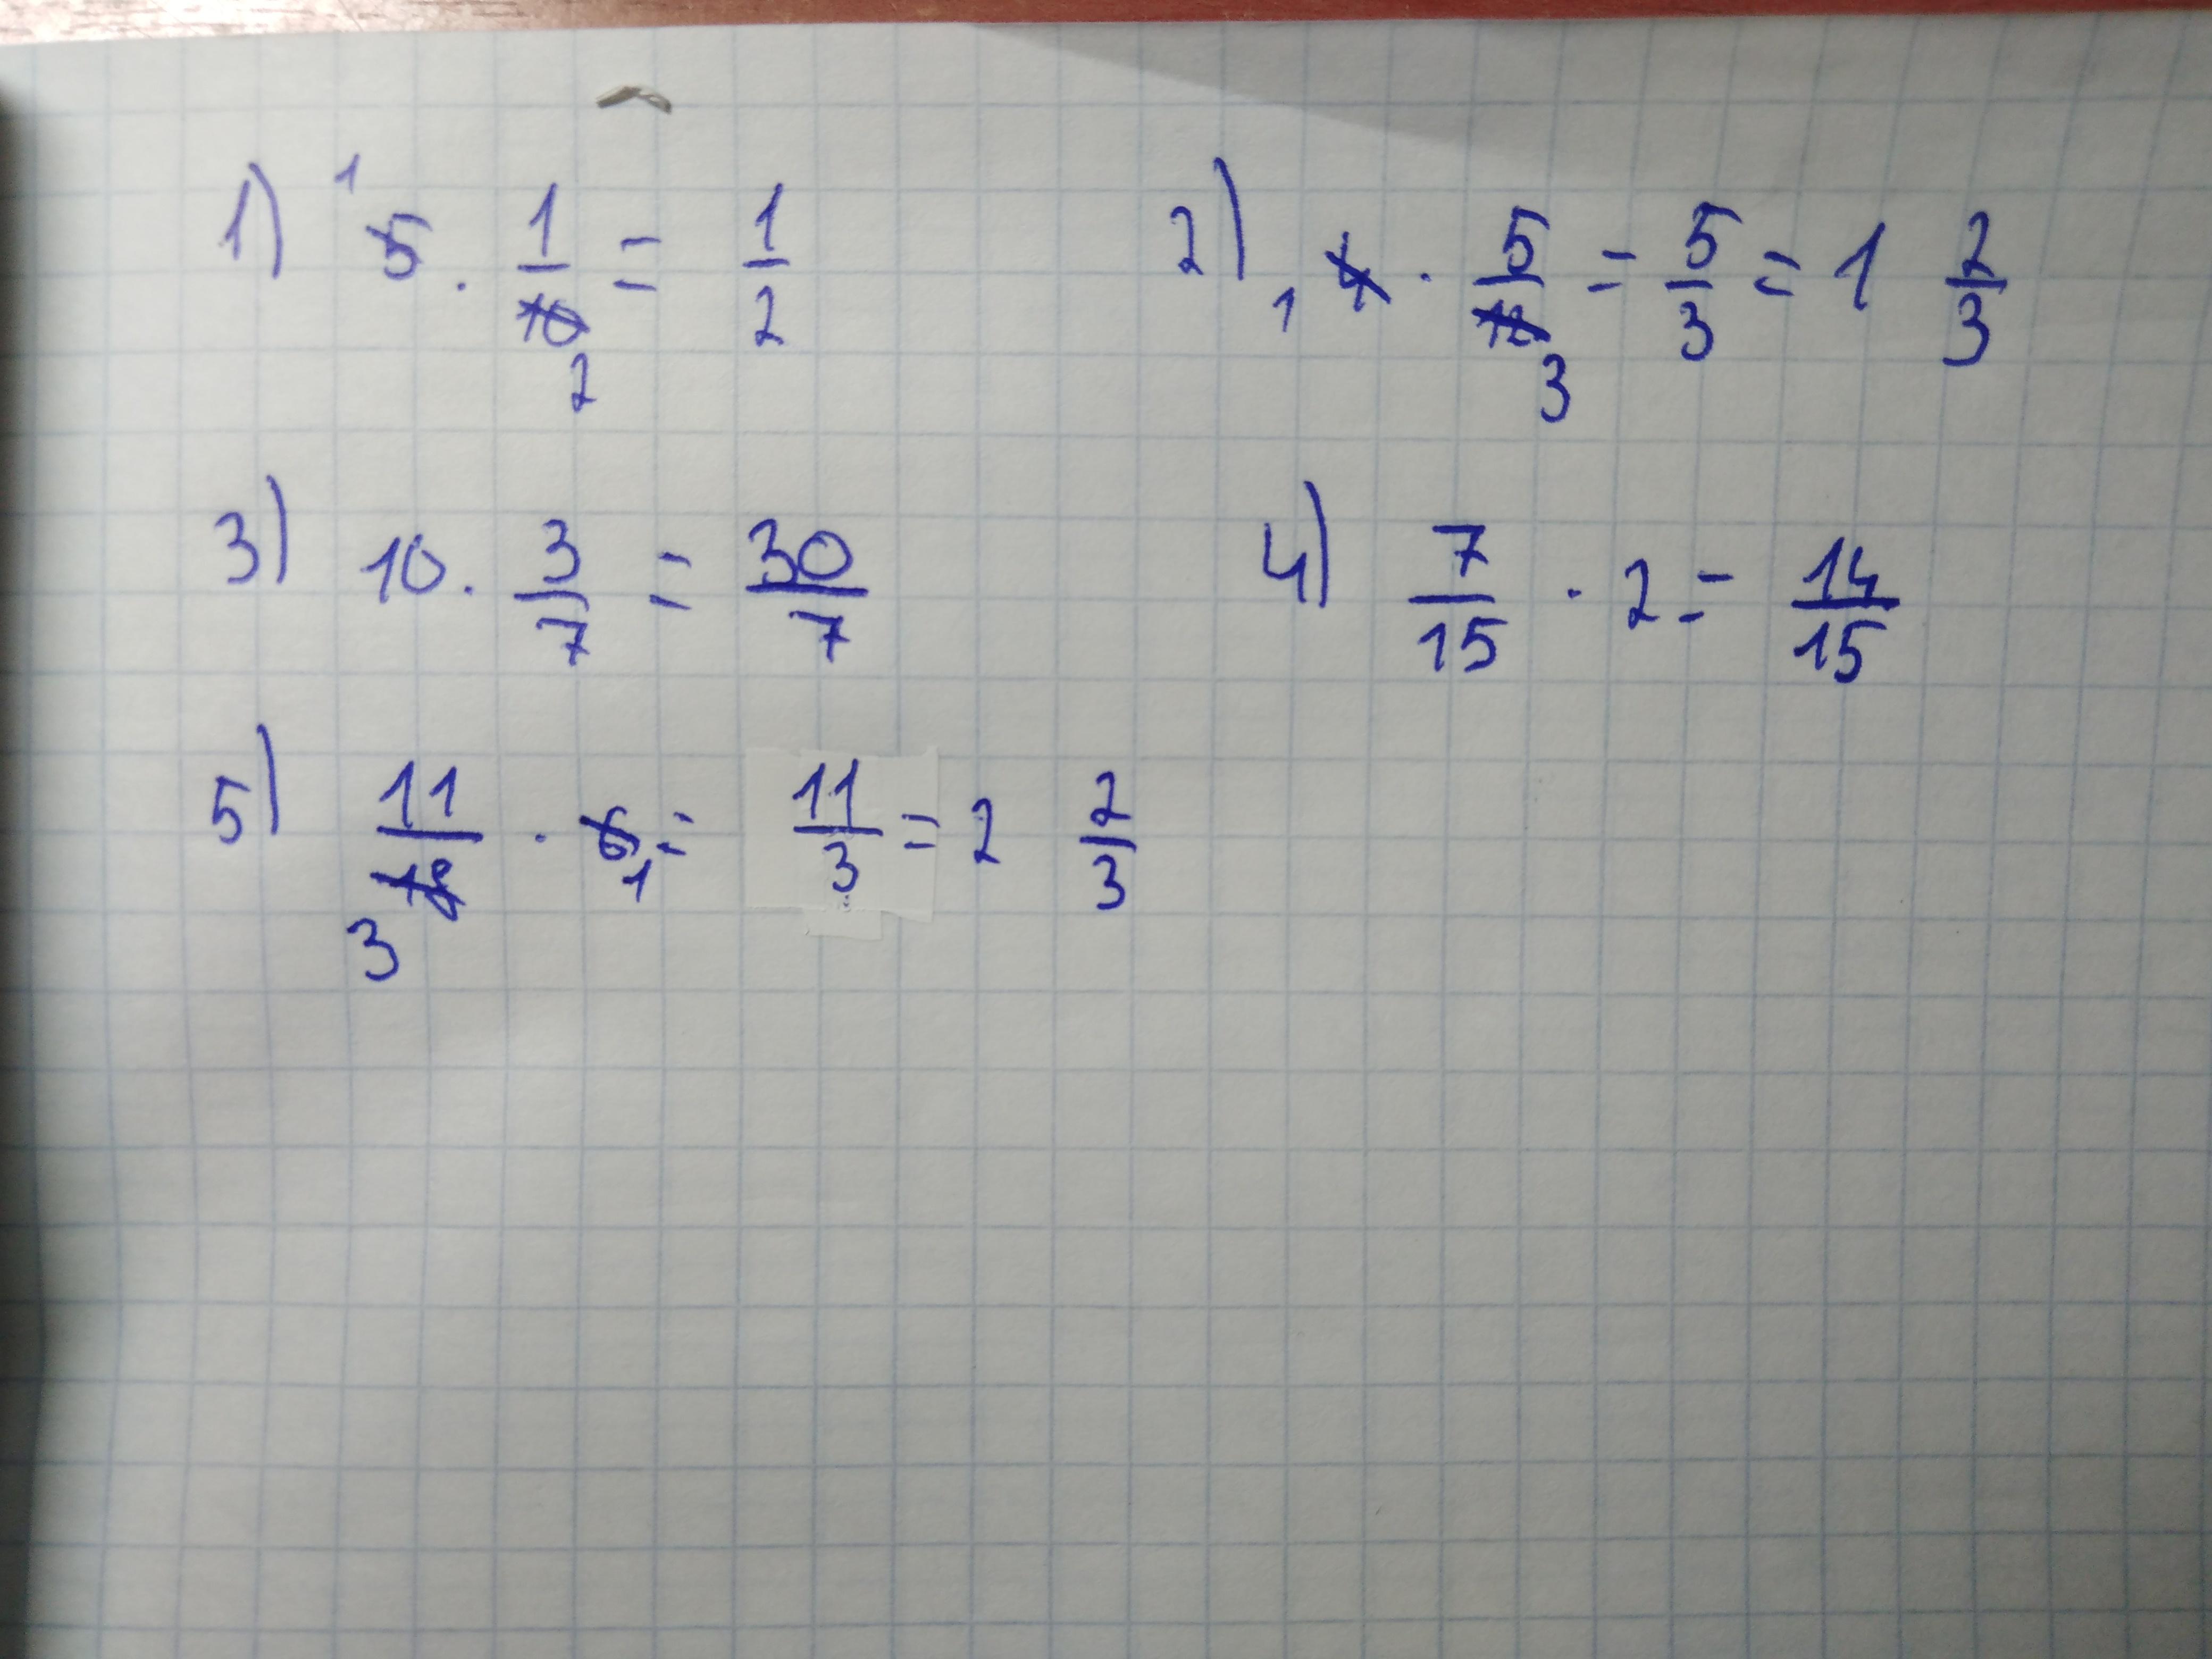 1) ¹5 · 1/10₂ = 1/2
2) ₁4 · 5/12₃ = 5/3 = 1 2/3
3) 10 · 3/7 = 30/7
4) 7/15 · 2 = 14/15
5) 11/18₃ · 6₁ = 11/3 = 2 2/3